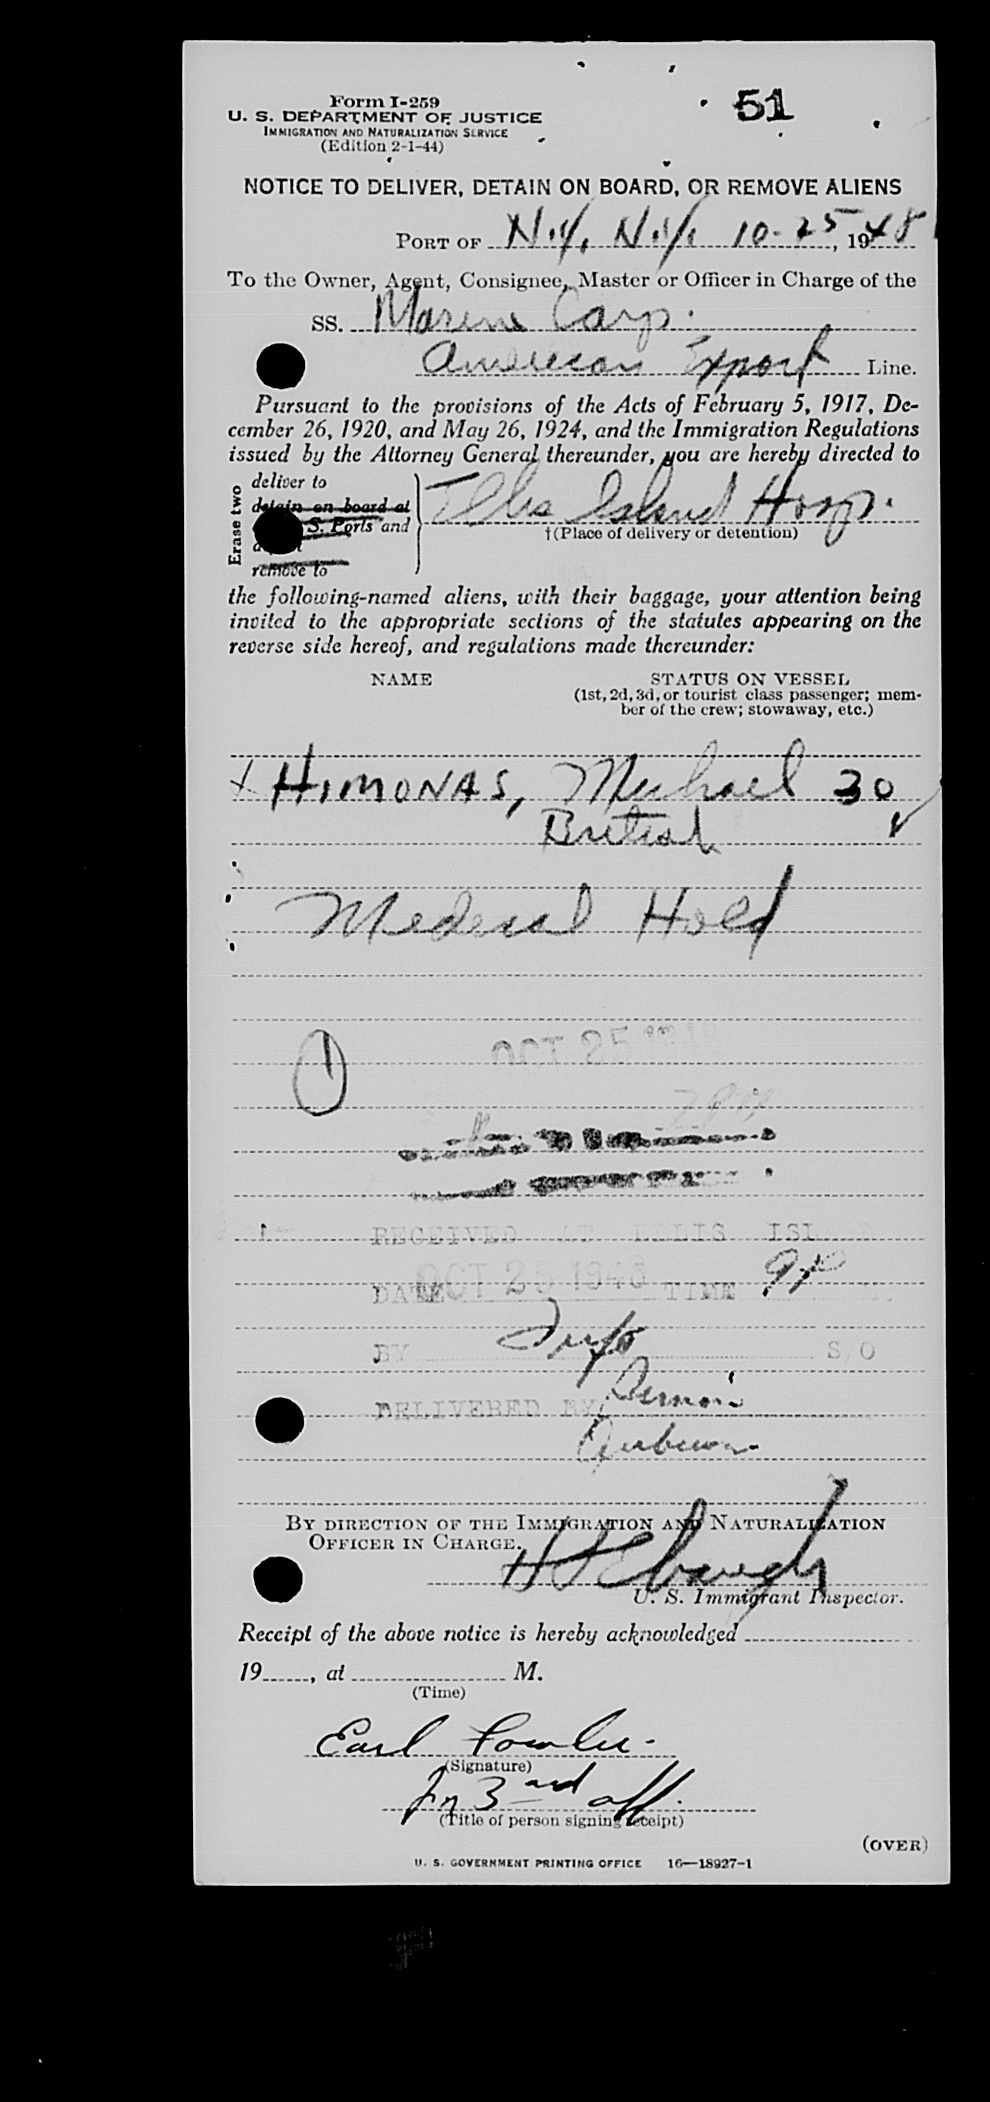 51
Form I-259
U. S. DEPARTMENT OF JUSTICE
IMMIGRATION AND NATURALIZATION SERVICE
(Edition 2-1-44)
NOTICE TO DELIVER, DETAIN ON BOARD, OR REMOVE ALIENS
PORT OF N.Y., N.Y. 10-25, 1948
To the Owner, Agent, Consignee, Master or Officer in Charge of the
SS. Marine Carp.
American Export Line.
Pursuant to the provisions of the Acts of February 5, 1917, De-
cember 26, 1920, and May 26, 1924, and the Immigration Regulations
issued by the Attorney General thereunder, you are hereby directed to
Erase two
deliver to
detain on board at
S. Ports and
remove to
Ellis Island Hosp.
†(Place of delivery or detention)
the following-named aliens, with their baggage, your attention being
invited to the appropriate sections of the statutes appearing on the
reverse side hereof, and regulations made thereunder:
NAME
STATUS ON VESSEL
(1st, 2d, 3d, or tourist class passenger; mem-
ber of the crew; stowaway, etc.)
x HIMONAS, Michael 30
British ✓
Medical Hold
1
OCT 25
RECEIVED AT ELLIS ISL
DATE OCT 25 1948 TIME
BY S/O
DELIVERED BY
BY DIRECTION OF THE IMMIGRATION AND NATURALIZATION
OFFICER IN CHARGE.
U. S. Immigrant Inspector.
Receipt of the above notice is hereby acknowledged
19, at M.
(Time)
Earl Fowler
(Signature)
Jr 3rd off.
(Title of person signing receipt)
(OVER)
U. S. GOVERNMENT PRINTING OFFICE 16—18927-1